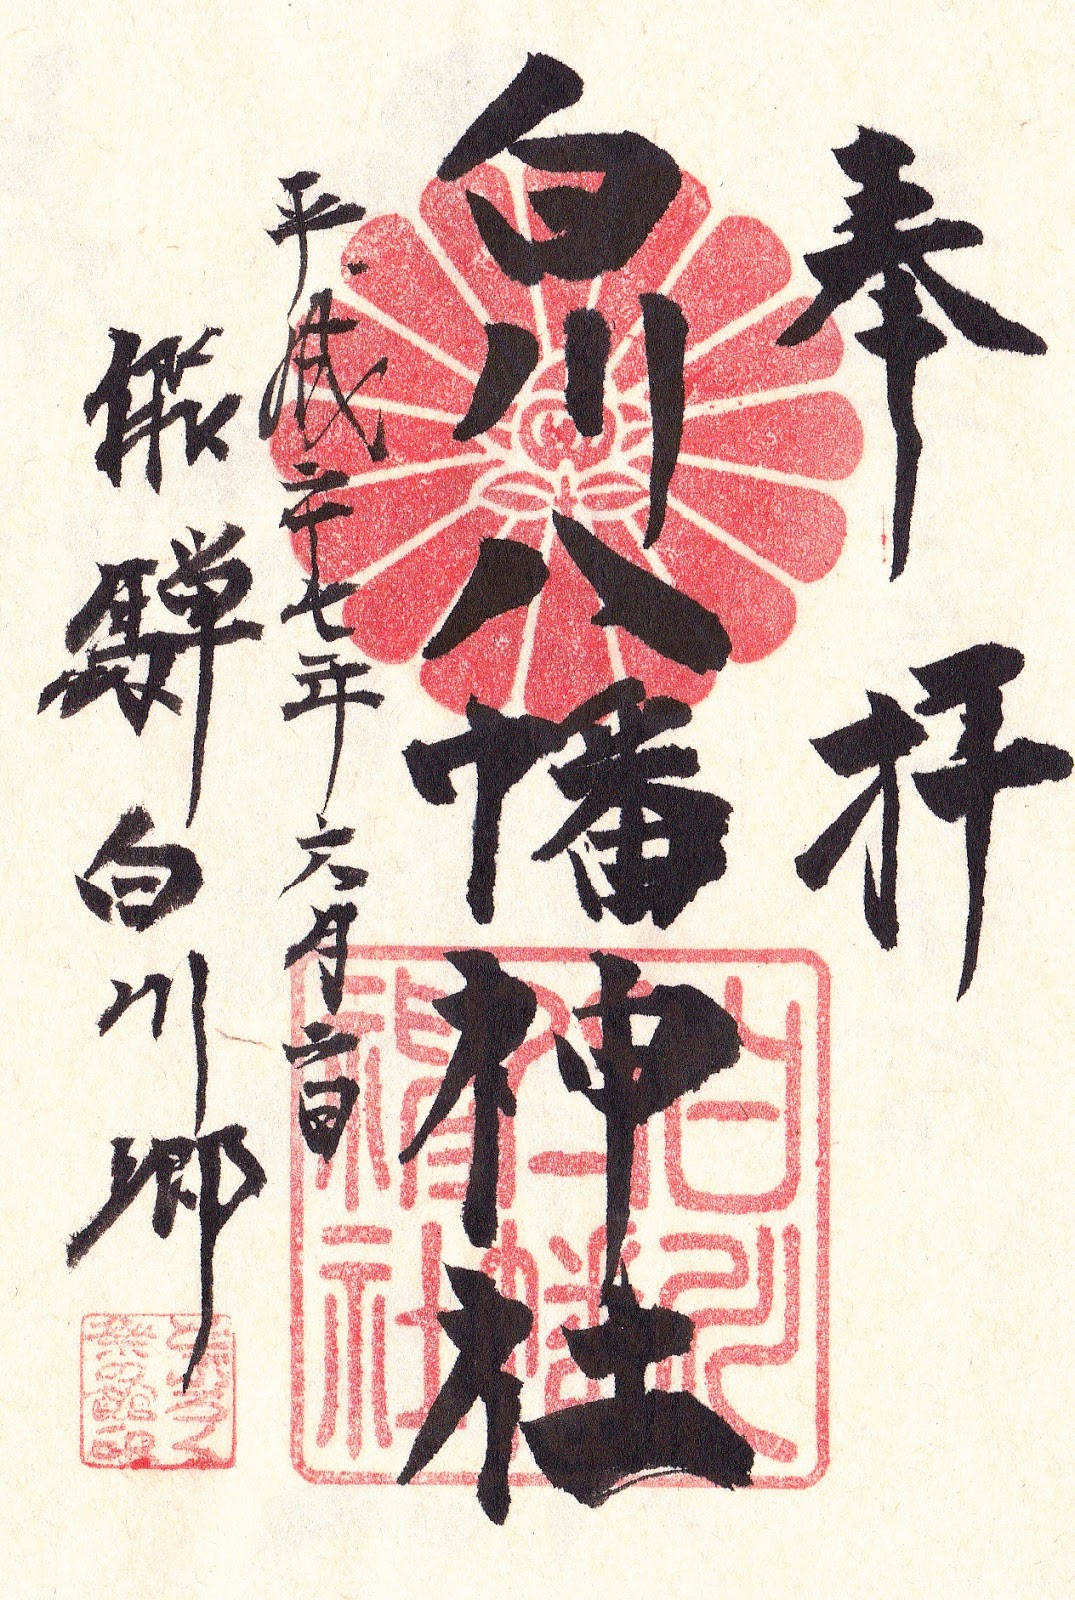 奉拝
白川八幡神社
平成二十七年六月二日
飛騨白川郷
白川八幡神社